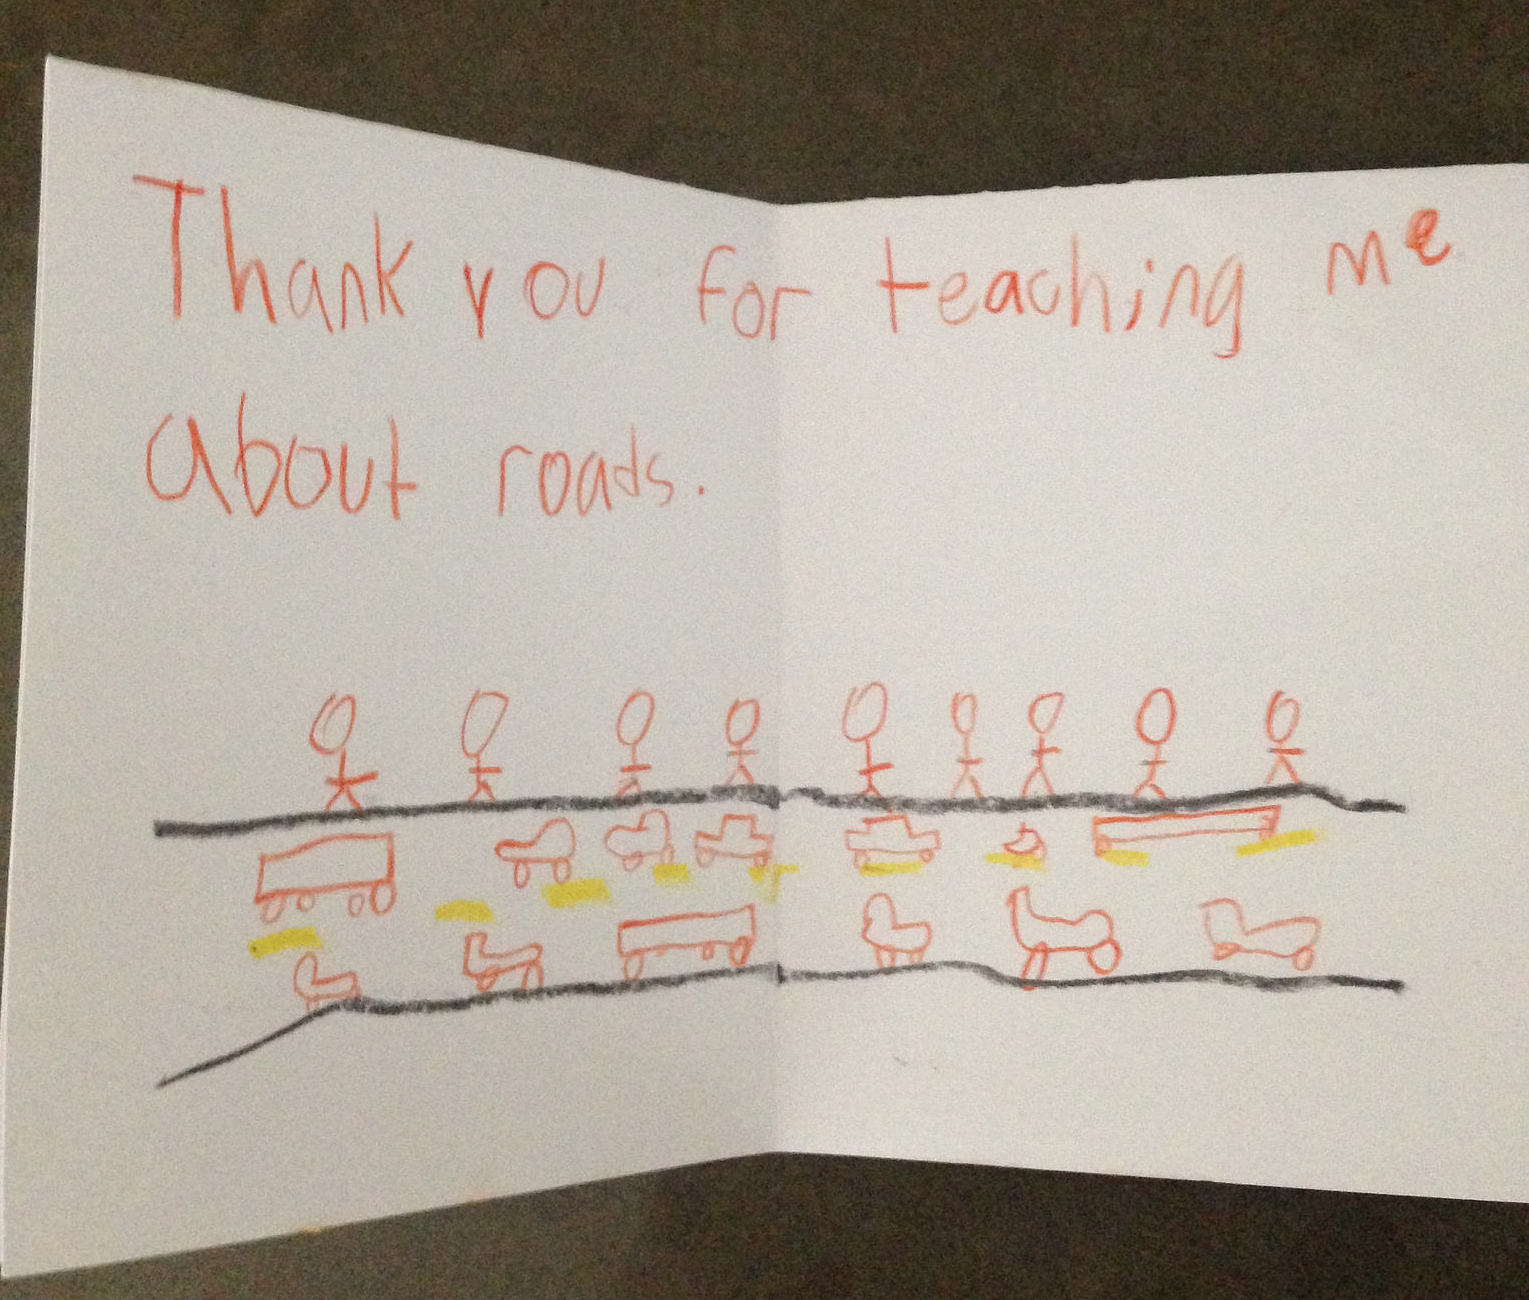 Thank you for teaching me
about roads.